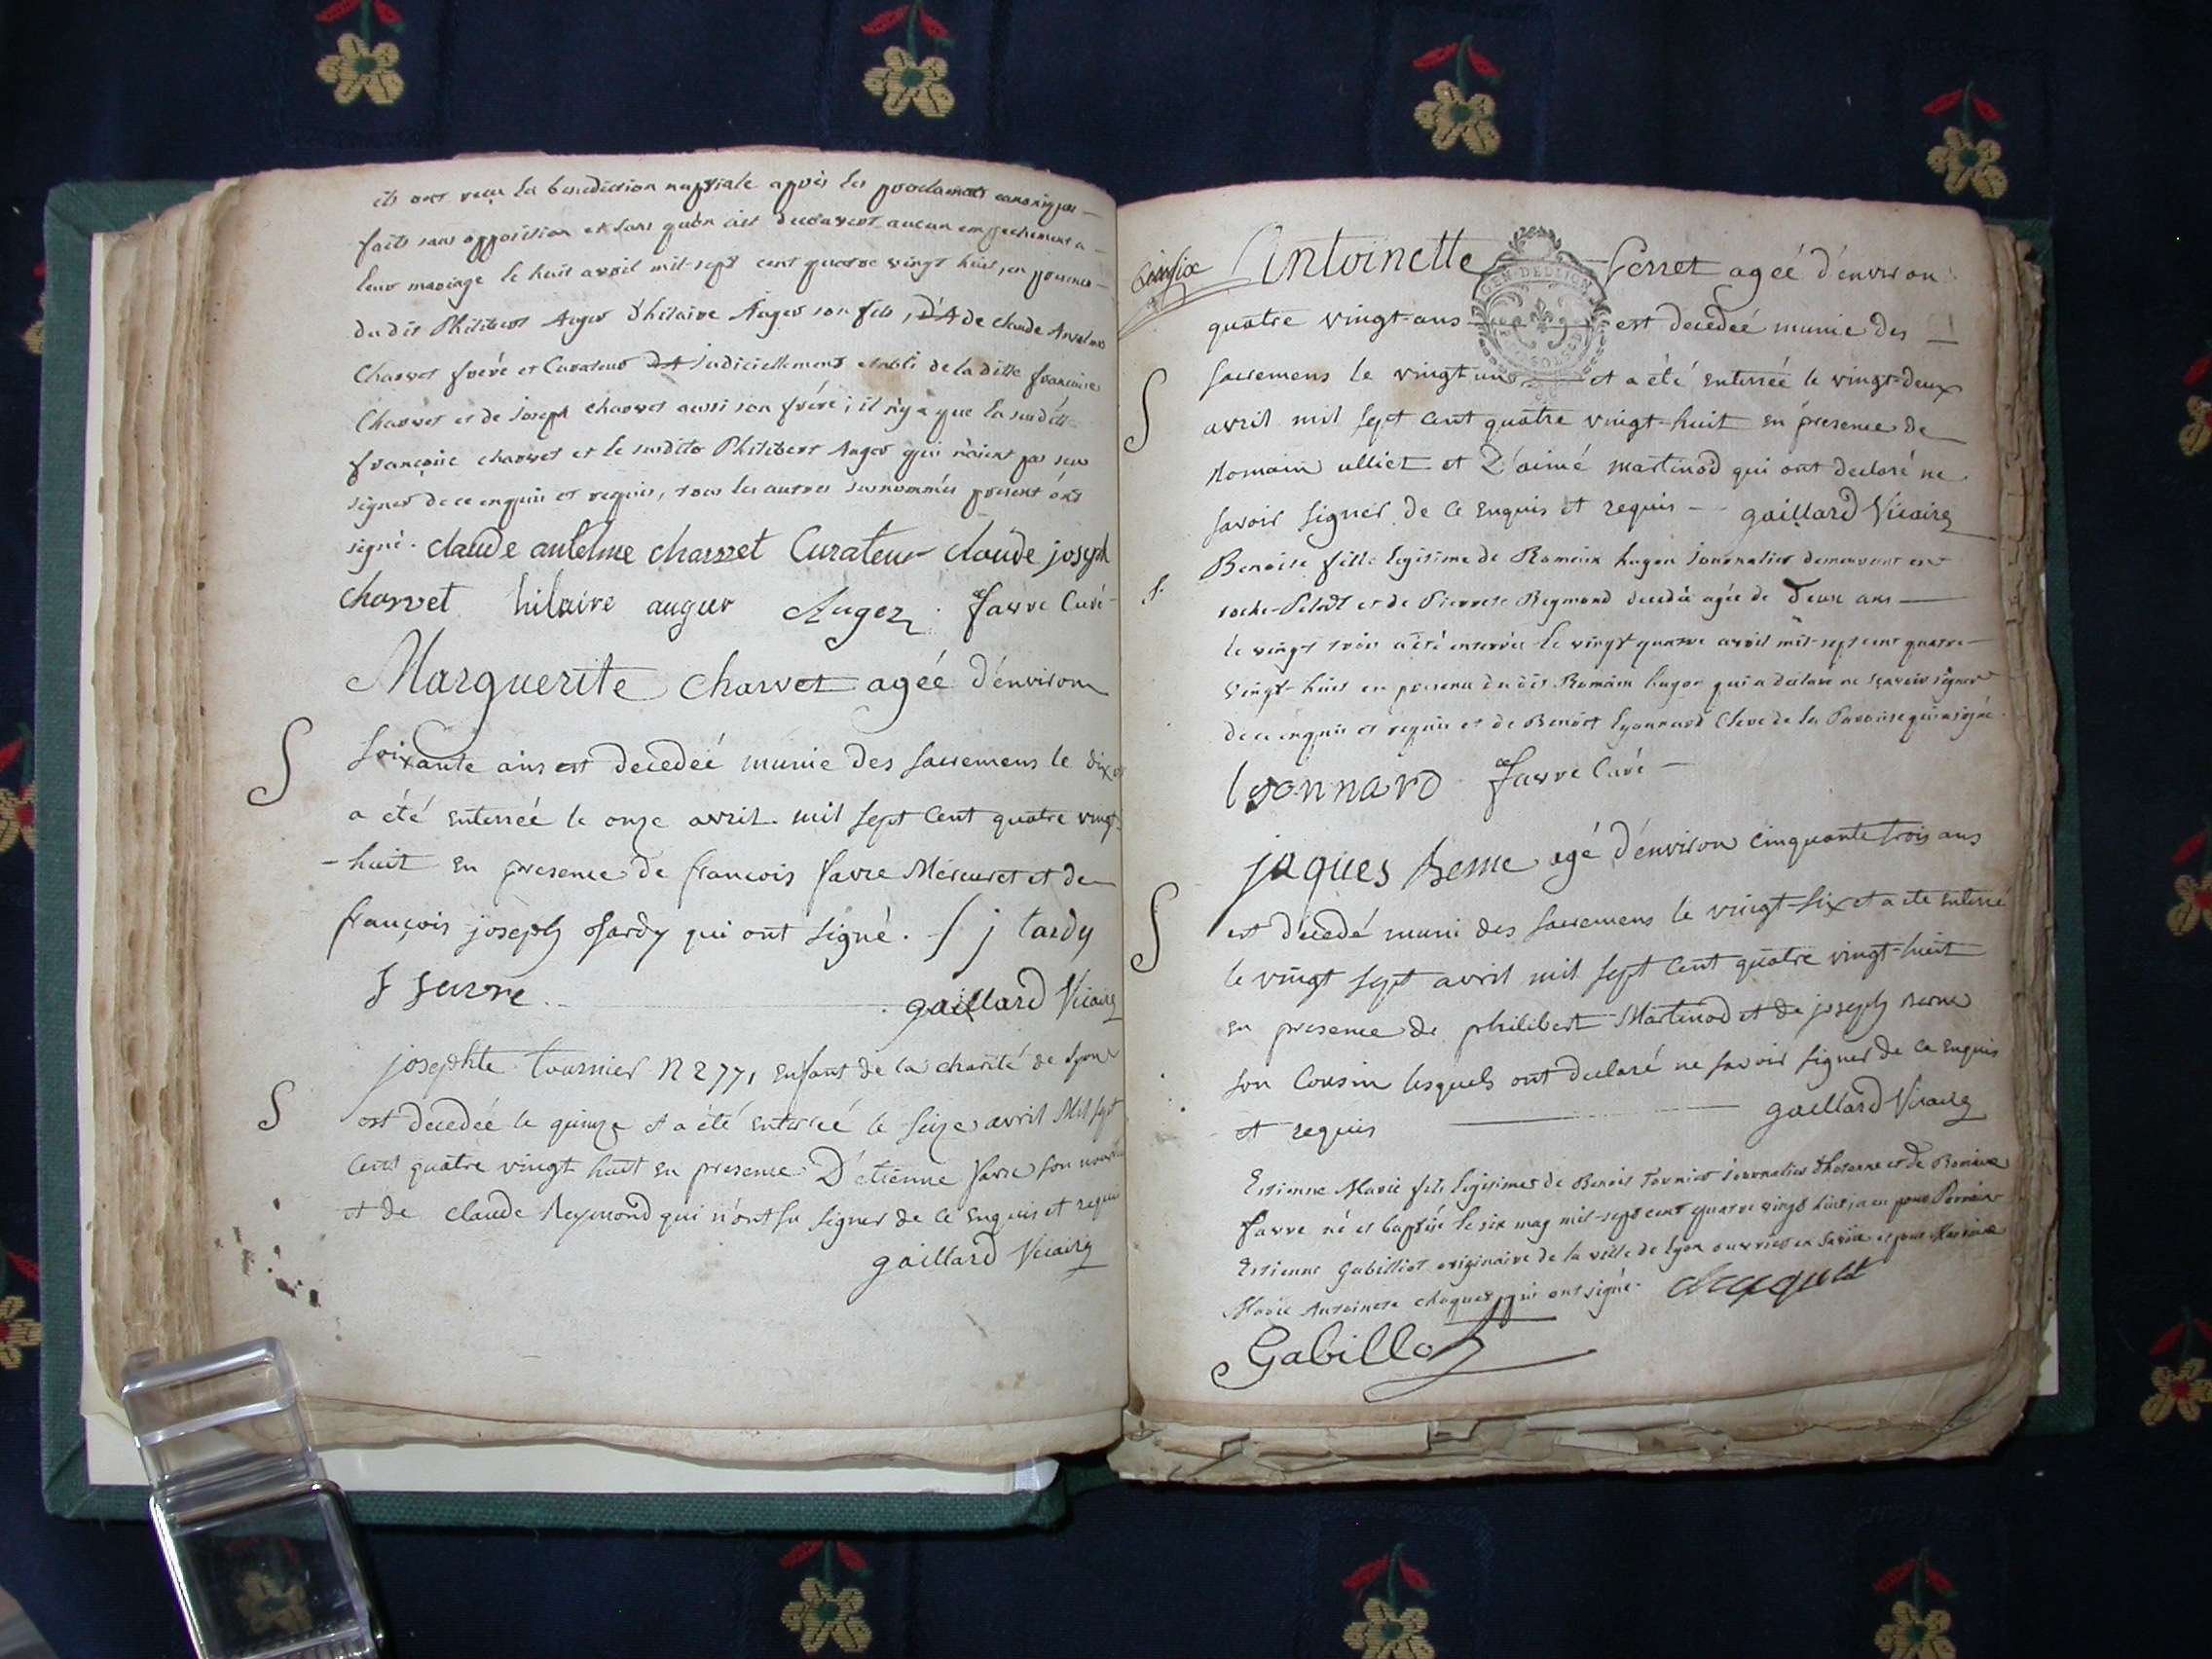 ils ont reçu la benediction nuptiale après les proclamats canoniques
faits sans opposition et sans qu'on ait decouvert aucun empechement a
leur mariage le huit avril mil-sept cent quatre vingt huit, en presence
du dit Philibert Auger d'hilaire Auger son fils, de claude Anselme
Charvet frére et Curateur judiciellement etabli de la ditte françoise
Charvet et de joseph charvet aussi son frére; il n'y a que la sus ditte
françoise charvet et le susditte Philibert Auger qui n'aient pas seu
signer de ce enquis et requis, tous les autres susnommés present ont
signé. claude antelme charvet Curateur claude joseph
charvet hilaire auger Auger. favre Curé
Marguerite charvet ageé d'environ
S
soixante ans est decedeé munie des sacremens le dix et
a été enterreé le onze avril mil sept cent quatre vingt
-huit en presence de françois favre Mercuret et de
françois joseph tardy qui ont signé. f j tardy
f favre. gaillard Vicaire
josephte tournier N 277, enfant de la charité de lyon
S
est decedeé le quinze et a été enterreé le seize avril Mil sept
cent quatre vingt huit en presence D'etienne favre son
et de claude Reymond qui n'ont su signer de ce enquis et requis
gaillard Vicaire
Antoinette Perret ageé d'environ
GEN. DE DIJON
quatre vingt-ans est decedeé munie des
sacremens le vingt un et a été enterreé le vingt-deux
S
avril mil sept cent quatre vingt-huit en presence de
Romain ulliet et D'aimé martinod qui ont declaré ne
savoir signer de ce enquis et requis -- gaillard Vicaire
Benoite fille legitime de Romain hugon journalier demeurant en
S.
roche- et de Pierrete Reymond decedée agée de Deux ans
le vingt trois a été enterrée le vingt quatre avril mil-sept cent quatre-
vingt-huit en presence du dit Romain hugon qui a declaré ne sçavoir signer
de ce enquis et requis et de Benoit lyonnard Cleve de la Paroisse qui a signé.
lyonnard favre Curé
jaques Berne agé d'environ cinquante trois ans
S
est decedé muni des sacremens le vingt-six et a ete enterré
le vingt sept avril mil sept cent quatre vingt-huit
en presence de philibert Martinod et de joseph berne
son Cousin lesquels ont declaré ne savoir signer de ce enquis
et requis gaillard Vicaire
Etienne Marie fils legitime de Benoit Tournier journalier et de Romaine
favre né et baptisé le six may mil-sept cent quatre vingt huit, a eu pour Parrain
Etienne Gabilliot originaire de la ville de lyon ouvrier en Savoie et pour Marraine
Marie Antoinete chaquet, qui ont signé. chaquet
Gabillot